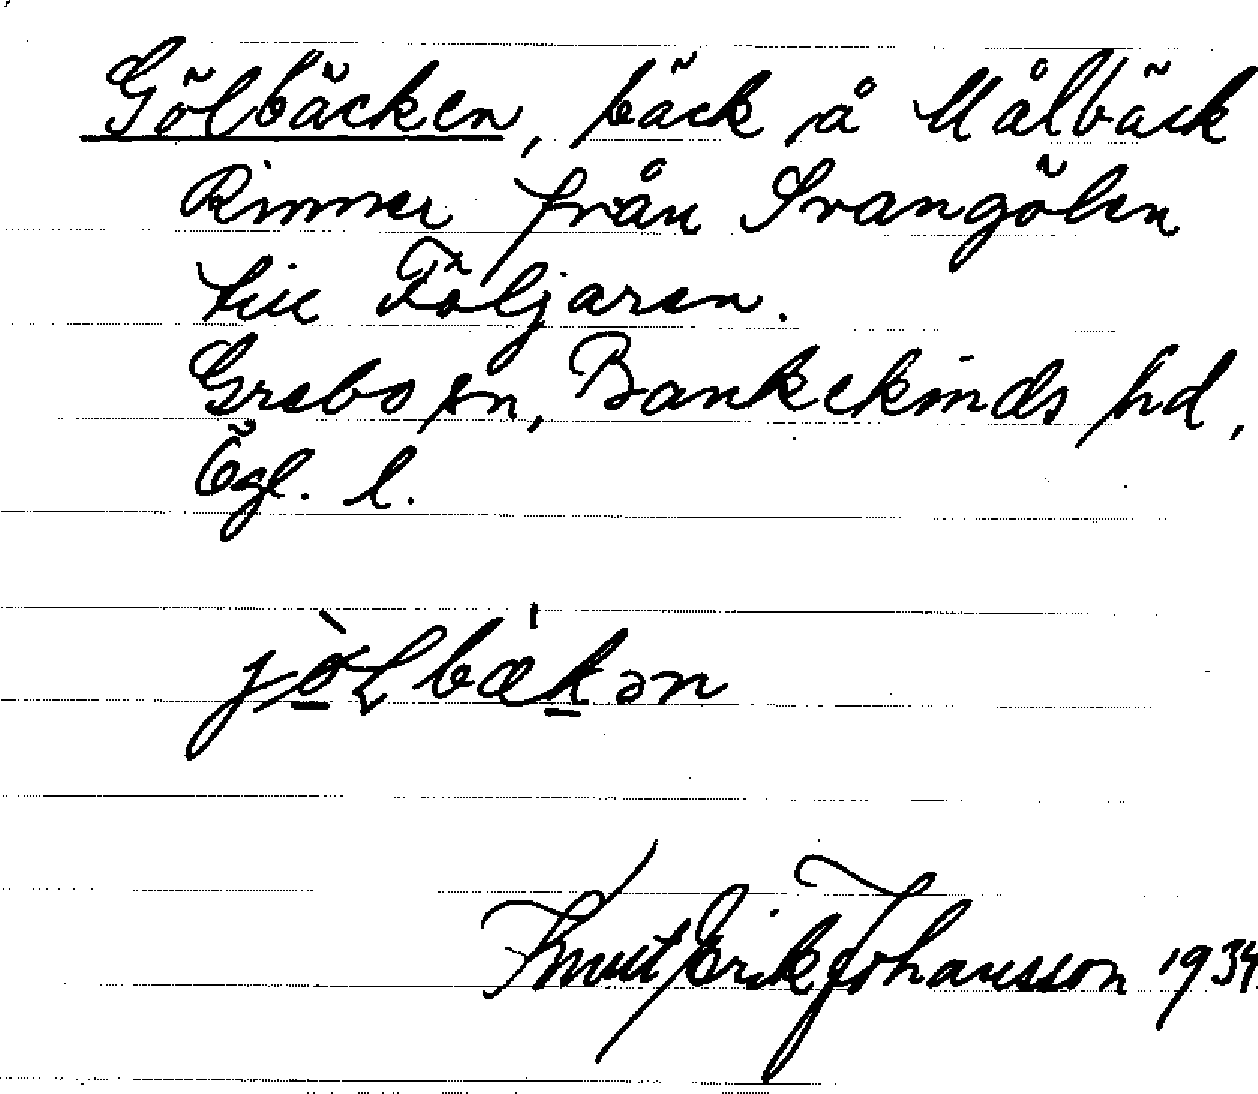 Gölbäcken, bäck å Målbäck
Rinner från Svangölen
till Följaren.
Grebo sn, Bankekinds hd,
Ögl. l.
jö̀Lbækən
Knut Erik Johansson 1934